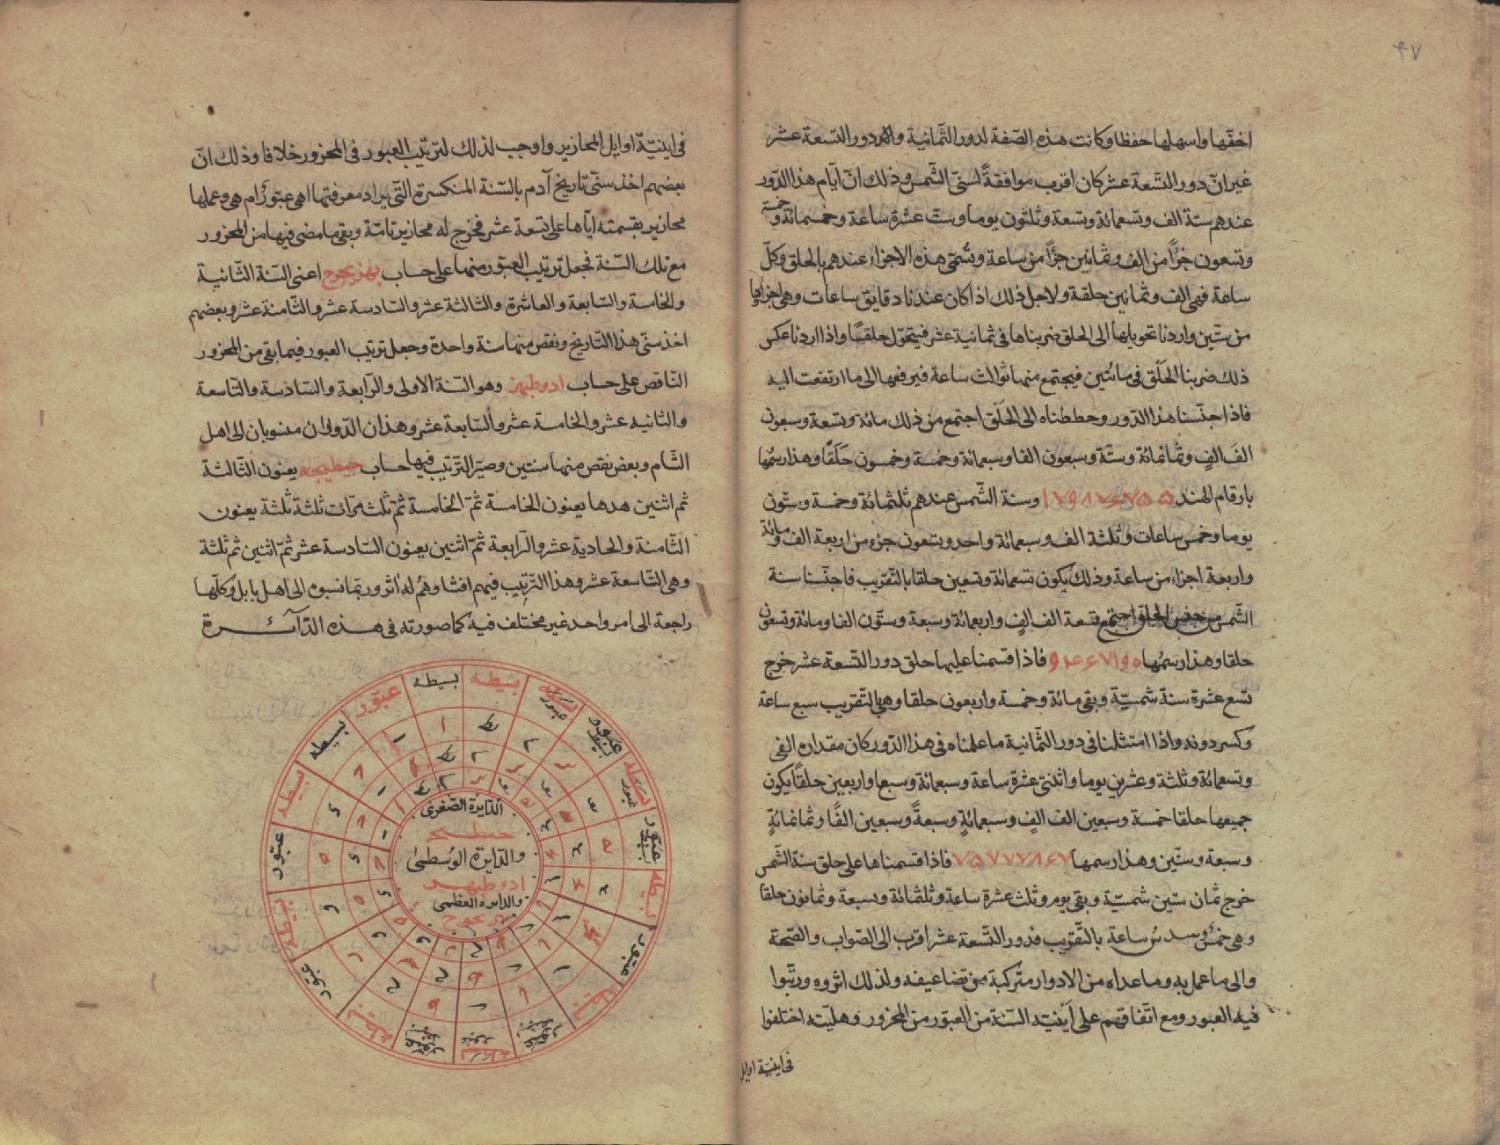 ٤٧
اخفّها واسهلها حفظا وكانت هذه الصّفة لدور الثّمانية ولدور التّسعة عشر
غير انّ دور التّسعة عشر كان اقرب موافقةً لسنىّ الشّمس وذلك انّ ايّام هذا الدّور
عندهم ستة الف وتسعمائة وتسعة وثلثون يوما وستّ عشرة ساعة وخمسمائة وخمسة
وتسعون جزأً من الف وثمانين جزأً من ساعة وتسُمّى هذه الاجزاء عندهم بالحلق وكلّ
ساعة فهى الف وثمانين حلقة ولاجل ذلك اذا كان عندنا دقايق ساعات وهى اجزاؤها
من ستّين واردنا تحويلها الى الحلق ضربناها فى ثمانية عشر فيتحوّل حلقًا واذا اردنا عكس
ذلك ضربنا الحلق فى مائتين فيجتمع منها ثوالث ساعة فيرفعها الى ما ارتفعت اليه
فاذا جنّسنا هذا الدّور وحططناه الى الحلق اجتمع من ذلك مائة وتسعة وسبعون
الفَ الفٍ وثمانمائة وستّة وسبعون الفا وسبعمائة وخمسة وخمسون حَلَقًا وهذا رسمها
بارقام الهند ١٧٩٨٧٦٧٥٥ وسنة الشّمس عندهم ثلثمائة وخمسة وستّون
يوما وخمس ساعات وثلثة الف وسبعمائة واحد وتسعون جزء من اربعة الف ومائة
واربعة اجزاء من ساعة وذلك يكون تسعمائة وتسعين حلقا بالتّقريب فاجنّسنا سنة
الشّمس من جنس الحلق اجتمع تسعة الف الفٍ واربعمائة وسبعة وستّون الفا ومائة وتسعون
حلقا وهذا رسمُها ٩٤٦٧١٩٠ فاذا قسمنا عليها حلق دور التّسعة عشر خرج
تسع عشرة سنة شمسيّة وبقى مائة وخمسة واربعون حلقا وهى بالتّقريب سبع ساعة
وكسر دونه واذا امتثلنا فى دور الثّمانية ما علمناه فى هذا الدّور كان مقداره الفى
وتسعمائة وثلثة وعشرين يوما واثنتى عشرة ساعة وسبعمائة وسبعا واربعين حلقًا يكون
جميعها حلقا خمسة وسبعين الف الفٍ وسبعمائةٍ وسبعةً وسبعين الفًا وثمانمائةٍ
وسبعة وستّين وهذا رسمها ٧٥٧٧٧٨٦٧ فاذا قسمناها على حلق سنة الشّمس
خرج ثمان سنّين شمسيّة وبقى يوم وثلث عشرة ساعة وثلثمائة وسبعة وثمانون حلقا
وهى خمُسٌ وسدسُ ساعة بالتّقريب فدور التّسعة عشر اقرب الى الصّواب والصّحة
والى ما عمل به وما عداه من الادوار متركبة من تضاعيفه ولذلك اثروه ورتّبوا
فيه العبور ومع اتّفاقهم على اَينيّة السّنة من العبّور من المحزور وهليّته اختلفوا
فى اينيّة اوايل
فى اينيّة اوايل المحازير واوجب لذلك لترتيب العبور فى المحزور خلافا وذلك انّ
بعضهم اخذ سنىّ تاريخ آدم بالسّنة المنكسرة الّتى يراد معرفتها اهى عبّور أم هى وعملها
محازير بقسمته ايّاها على تسعة عشر فخرج له محازير تامّة وبقى ما مضى فيها من المحزور
مع تلك السّنة فجعل ترتيب العبّور منها على حساب بهزيجوح اعنى السّنة الثّانية
والخامسة والسّابعة والعاشرة والثالثة عشر والسّادسة عشر والثّامنة عشر وبعضهم
اخذ سنى هذا التّاريخ ونقص منها سنة واحدة وجعل ترتيب العبور فيما بقى من المحزور
النّاقص على حساب ادوطبهز وهو السّنة الاولى والرّابعة والسّادسة والتّاسعة
والثانية عشر والخامسة عشر والسّابعة عشر وهذان الدّوران منسوبان الى اهل
الشّام وبعض نقص منها سنتين وصيّر التّرتيب فيها حساب جبطبجبه يعنون الثّالثة
ثم اثنين هدها يعنون الخامسة ثمّ الخامسة ثمّ ثلث مرّات ثلثة ثلثة يعنون
الثّامنة والحادية عشر والرّابعة ثمّ اثنين يعنون السّادسة عشر ثمّ اثنين ثم ثلثة
وهى التّاسعة عشر وهذا التّرتيب فيهم افشا وهُم له اثر وربّما نسبوه الى اهل بابل وكلّها
راجعة الى امر واحد غير مختلف فيه كما صورته فى هذه الدّآئرة
الدّايرة الصّغرى
جبطبج
والدّايرة الوُسطى
ادوطبهز
والدايرة العظمى
بهزيجوح
بسيطة
بسيطة
عبّور
بسيطه
بسيطة
عبّور
بسيطة
عبور
بسيطة
عبّور
بسيطة